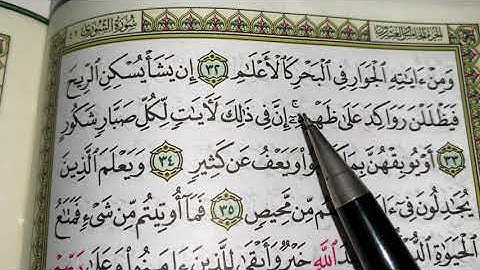 سُورَةُ الشُّورَىٰ ٤٢
وَمِنْ ءَايَٰتِهِ ٱلْجَوَارِ فِى ٱلْبَحْرِ كَٱلْأَعْلَٰمِ ٣٢ إِن يَشَأْ يُسْكِنِ ٱلرِّيحَ
فَيَظْلَلْنَ رَوَاكِدَ عَلَىٰ ظَهْرِهِۦٓ ۚ إِنَّ فِى ذَٰلِكَ لَأٓيَٰتٍ لِّكُلِّ صَبَّارٍ شَكُورٍ
٣٣ أَوْ يُوبِقْهُنَّ بِمَا وَيَعْفُ عَن كَثِيرٍ ٣٤ وَيَعْلَمَ ٱلَّذِينَ
يُجَٰدِلُونَ فِىٓ مِّن مَّحِيصٍ ٣٥ فَمَآ أُوتِيتُم مِّن شَىْءٍ فَمَتَٰعُ
ٱلْحَيَوٰةِ ٱللَّهِ خَيْرٌ وَأَبْقَىٰ لِلَّذِينَ ءَامَنُوا۟ وَعَلَىٰ